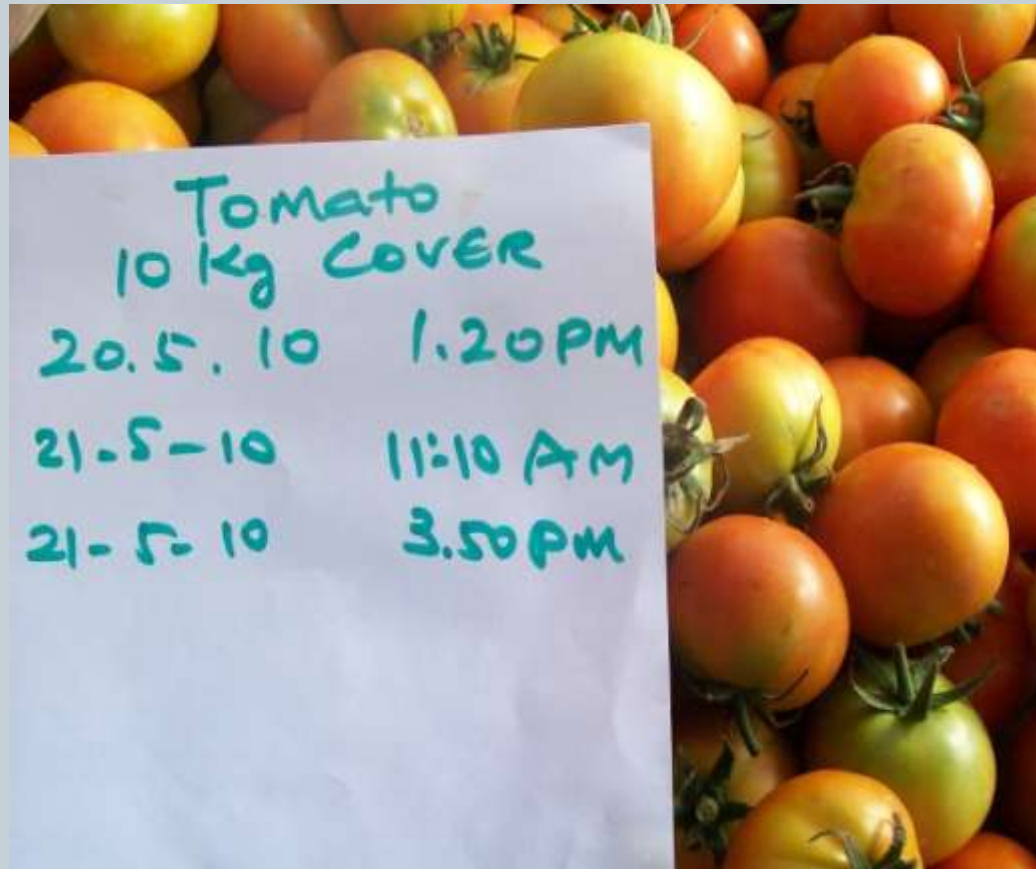 Tomato
10 Kg COVER
20.5.10 1.20PM
21-5-10 11:10 AM
21-5-10 3.50PM